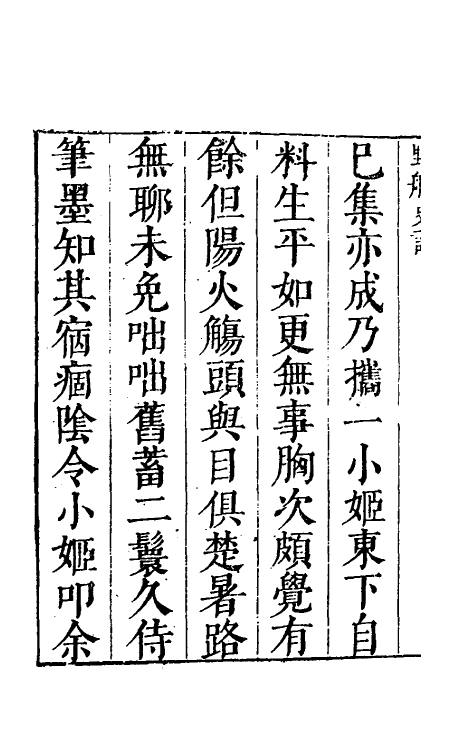 已集亦成乃攜一小姬東下自
料生平如更無事胸次頗覺有
餘但陽火觴頭與目俱楚暑路
無聊未免咄咄舊蓄二鬟久侍
筆墨知其宿痼陰令小姬叩余